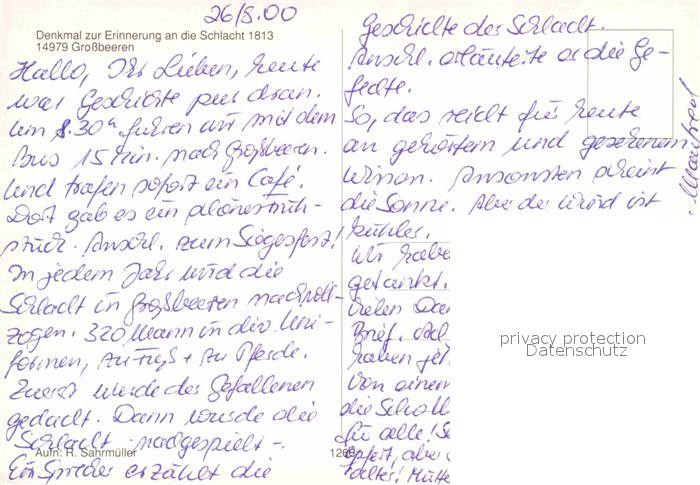 26/8.00
Denkmal zur Erinnerung an die Schlacht 1813
14979 Großbeeren
Hallo, Ihr Lieben, heute
war Geschichte pur dran.
Um 8.30 h fuhren wir mit dem
Bus 15 Min. nach Großbeeren.
Und trafen sofort ein Café.
Dort gab es ein
stück. Anschl. zum Siegesfest!
In jedem Jahr wird die
Schlacht in Großbeeren nachvoll-
zogen. 320 Mann in div. Uni-
formen, zu Fuß + zu Pferde.
Zuerst wurde der Gefallenen
gedacht. Dann wurde die
Schlacht nachgespielt -.
Aufn.: R. Sahrmüller
Ein Sprecher erzählt die
Geschichte der Schlacht.
Anschl. erläuterte er die Ge-
fechte.
So, das reicht für heute
an gehörtem und gesehenem
Wissen. Ansonsten scheint
die Sonne. Aber der Wind ist
kühler.
Wir habe
getankt.
Vielen Dan
Brief.
haben
von einem
die Scholl
für alle!
Mütte
Manfred
privacy protection
Datenschutz